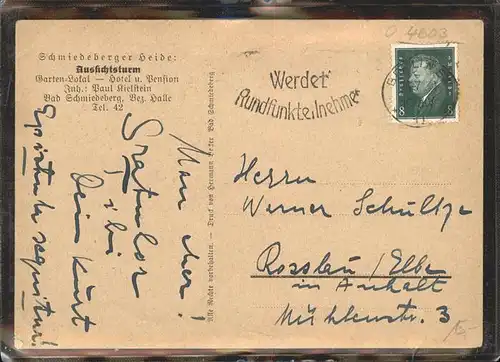 O 4603
Schmiedeberger Heide:
Aussichtsturm
Garten-Lokal — Hotel u. Pension
Inh.: Paul Kielstein
Bad Schmiedeberg, Bez. Halle
Tel. 42
Werdet
Rundfunkteilnehmer
8
Mon cher!
Gratulor
tibi
Dein Kurt
Epistula sequitur!
Alle Rechte vorbehalten. — Druck von Hermann Bad Schmiedeberg
Herrn
Werner Schultze
Rosslau / Elbe
in Anhalt
Mühlenstr. 3